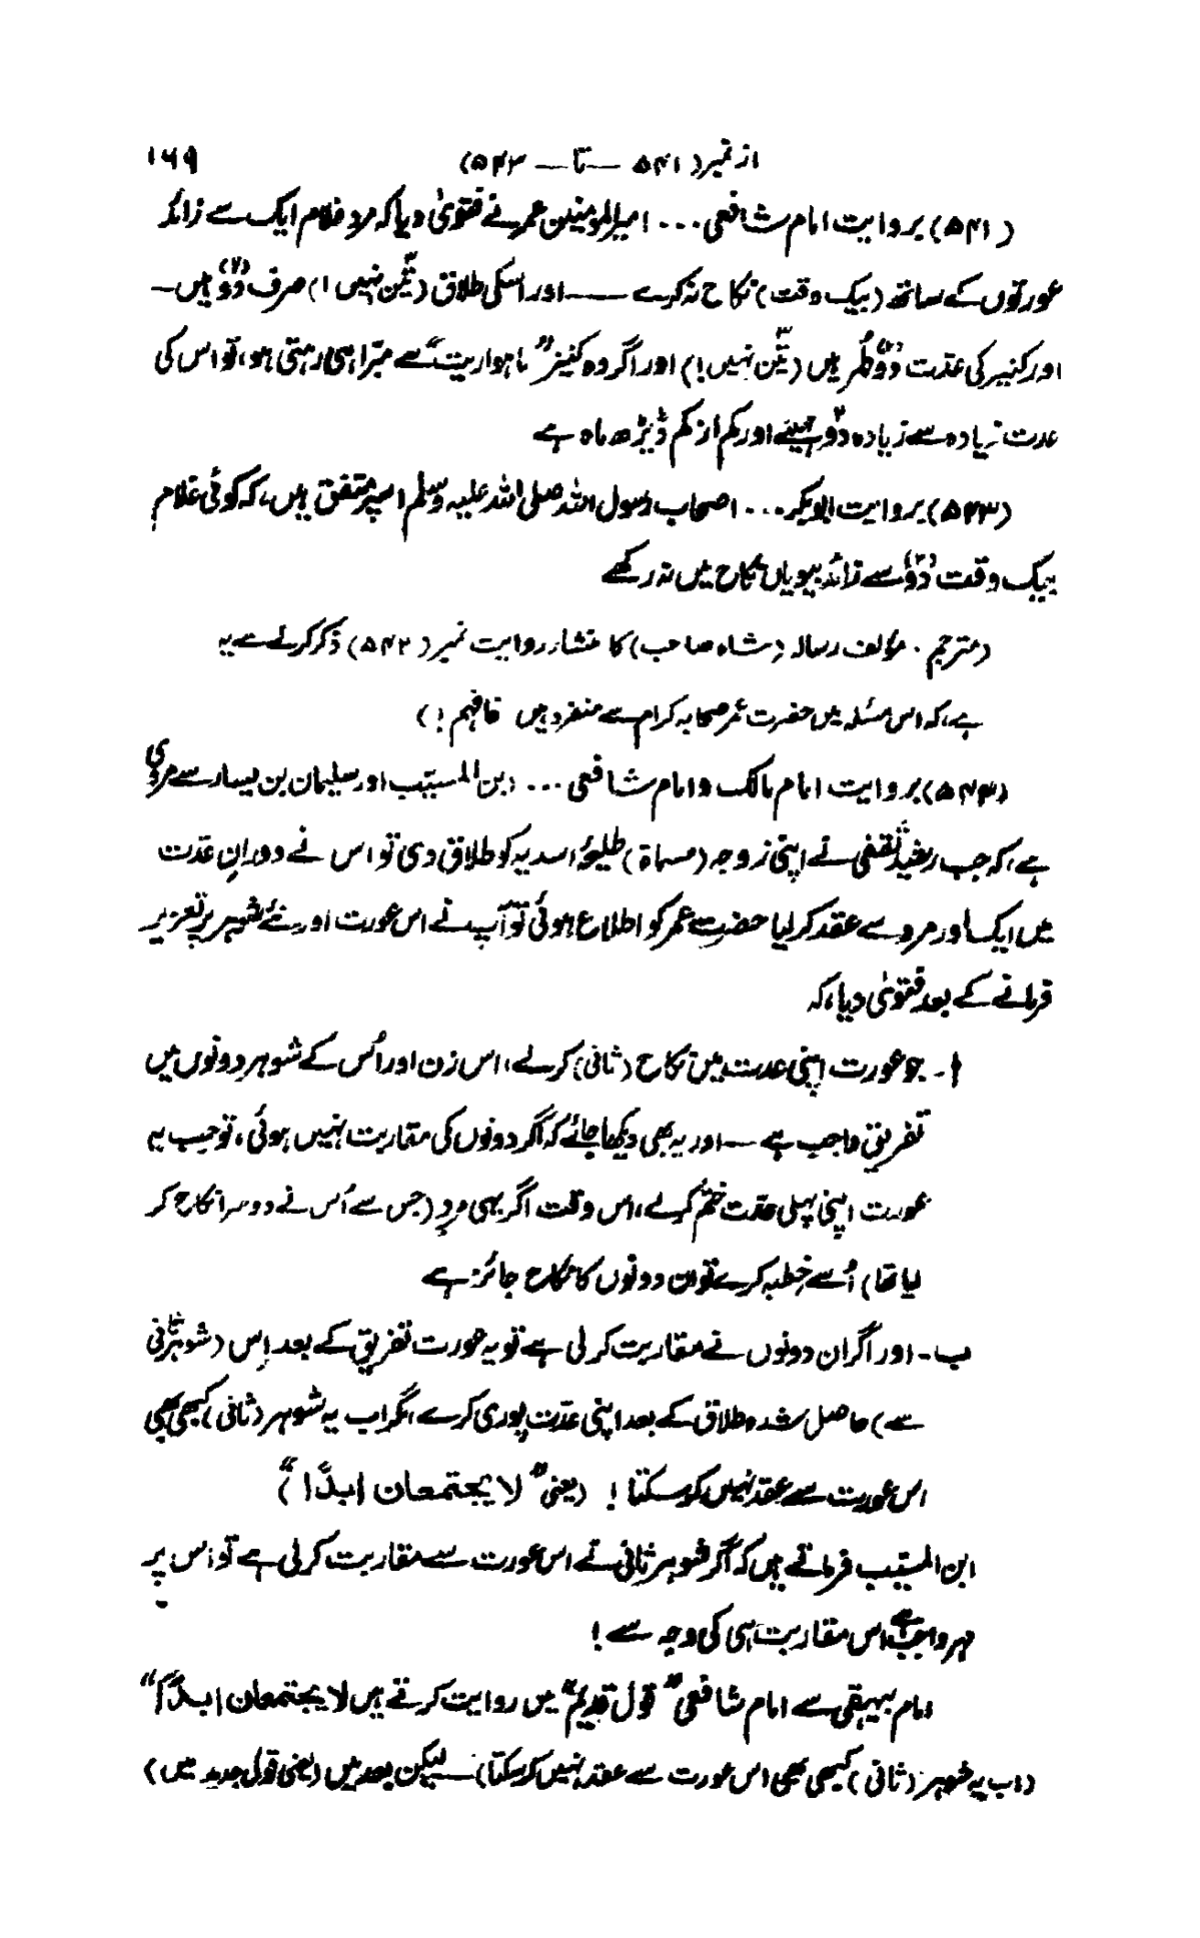 ۱۶۹
از نمبر (۵۴۱ — تا — ۵۴۳)
(۵۴۱) بروایت امام شافعی ... امیرالمومنین عمر نے فتویٰ دیا کہ مرد غلام ایک سے زائد
عورتوں کے ساتھ (بیک وقت) نکاح نہ کرے —— اور اسکی طلاق (تین نہیں!) صرف دو (۲) ہیں —
اور کنیز کی عدّت دو طُہر ہیں (تین نہیں!) اور اگر وہ کنیز "ماہواریت" سے مبّرا ہی رہتی ہو، تو اس کی
عدت زیادہ سے زیادہ دو مہینے اور کم از کم ڈیڑھ ماہ ہے
(۵۴۲) بروایت ابوبکر ... اصحاب رسول اللہ صلی اللہ علیہ وسلم اسپر متفق ہیں، کہ کوئی غلام
بیک وقت دو (۲) سے زائد بیویاں نکاح میں نہ رکھے
(مترجم . مؤلف رسالہ (شاہ صاحب) کا منشاء روایت نمبر (۵۴۲) ذکر کرنے سے یہ
ہے، کہ اس مسئلہ میں حضرت عمر صحابہ کرام سے منفرد ہیں فافہم!)
(۵۴۳) بروایت امام مالک و امام شافعی ... ابن المسیّب اور سلیمان بن یسار سے مروی
ہے، کہ جب رشید ثقفی نے اپنی زوجہ (مسماۃ) طلیحہ اسدیہ کو طلاق دی تو اس نے دورانِ عدّت
میں ایک اور مرد سے عقد کر لیا حضرت عمر کو اطلاع ہوئی تو آپ نے اس عورت اور نئے شوہر پر تعزیر
فرمانے کے بعد فتویٰ دیا، کہ
ا۔ جو عورت اپنی عدت میں نکاح (ثانی) کر لے، اس زن اور اُس کے شوہر دونوں میں
تفریق واجب ہے — اور یہ بھی دیکھا جائے کہ اگر دونوں کی مقاربت نہیں ہوئی، تو جب یہ
عورت اپنی پہلی عدّت ختم کر لے، اس وقت اگر یہی مرد (جس سے اُس نے دوسرا نکاح کر
لیا تھا) اُسے خطبہ کرے تو ان دونوں کا نکاح جائز ہے
ب۔ اور اگر ان دونوں نے مقاربت کر لی ہے تو یہ عورت تفریق کے بعد اِس (شوہر ثانی
سے) حاصل شدہ طلاق کے بعد اپنی عدّت پوری کرے، مگر اب یہ شوہر (ثانی) کبھی بھی
اس عورت سے عقد نہیں کر سکتا! (یعنی "لا یجتمعان ابدًا")
ابن المسیّب فرماتے ہیں کہ اگر شوہر ثانی نے اس عورت سے مقاربت کر لی ہے تو اس پر
مہر واجب ہے، اس مقاربت ہی کی وجہ سے!
امام بیہقی سے امام شافعی "قول قدیم" میں روایت کرتے ہیں لا یجتمعان ابدًا"
(اب یہ شوہر (ثانی) کبھی بھی اس عورت سے عقد نہیں کر سکتا) — لیکن بعد میں (یعنی قول جدید میں)